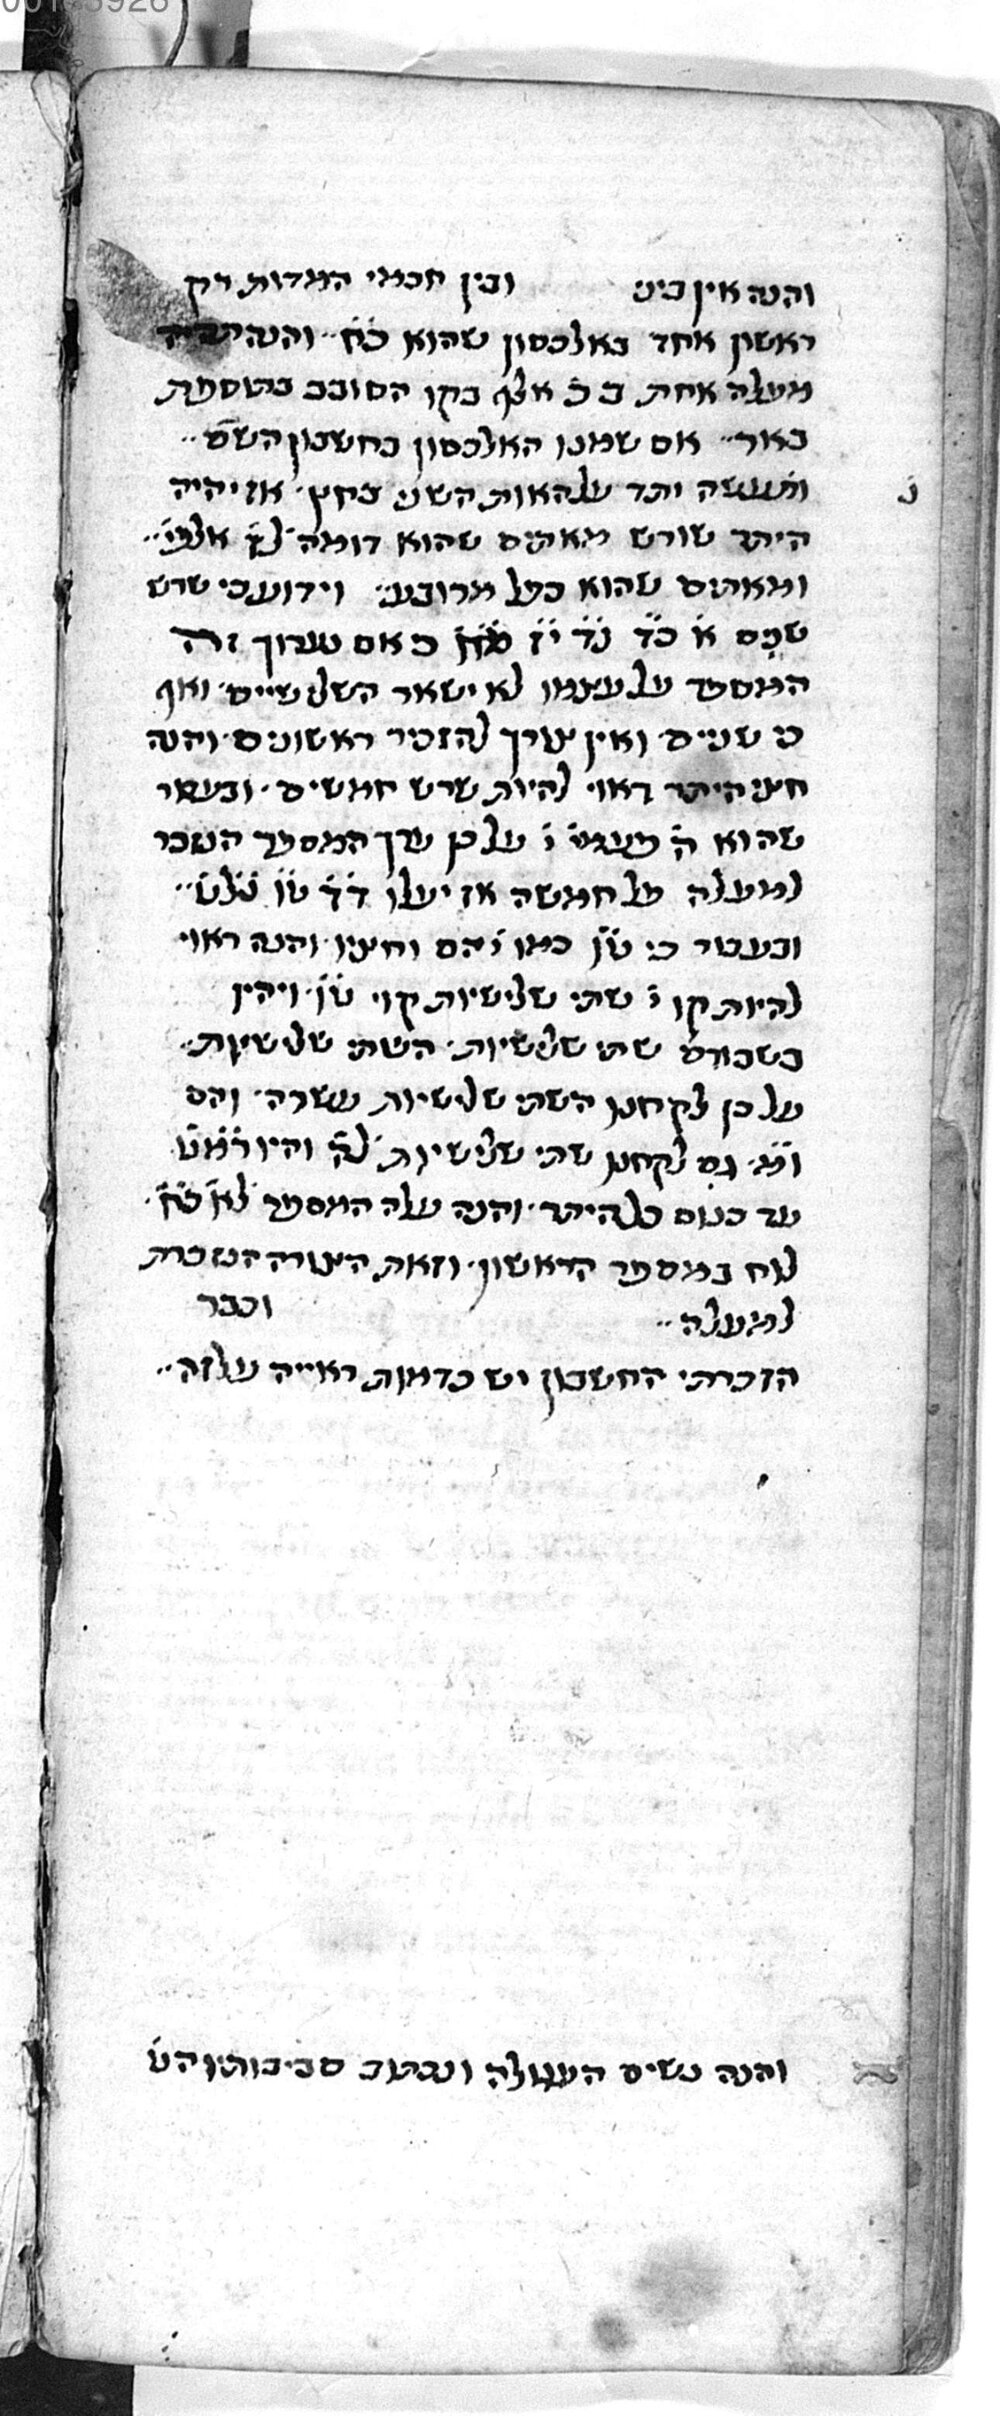 והנה אין ביני ובין חכמי המדות רק
ראשון אחד באלכסון שהוא כ̇ח̇ והנה יהיה
מעלה אחת ב כ אלף בקו הסובב בתוספת
באור אם שמנו האלכסון בחשבון השם
ונעשה יתר על האות השני בחץ אז יהיה
ג
היתר שורש מאתים שהוא דומה לי̇ אלפי
ומאתים שהוא כפל מרובע וידוע כי שרש
שנים א̇ כ̇ד̇ נ̇ד̇ י̇ז̇ כי אם תערוך זה
המספר על עצמו לא ישאר השלישיים ואף
כי שניים ואין צורך להזכיר ראשונים והנה
חצי היתר ראוי להיות שרש חמשים ובעבור
שהוא ה̇ פעמי ו̇ על כן ערך המספר הנזכר
למעלה על חמשה אז יעלו ד̇ד̇ ט̇ו̇
ובעבור כי ט̇ו̇ כמו י̇ הם וחציו והנה ראוי
להיות קו י̇ שתי שלישיות קוי ט̇ו̇ ויהיו
בשבורים שתי שלישיות השתי שלישיות
על כן לקחנו השתי שלישיות עשרה והם
ו̇מ̇ גם לקחנו שתי שלישיות והיו
עד בנוס כל היתר והנה עלה המספר לא̇ כ̇ח̇
לוח במספר הראשון וזאת הצורה הנזכרת
למעלה וכבר
הזכרתי החשבון יש בדמות ראייה על זה
והנה נשים העגולה ונכתוב סביבותיו הט̇